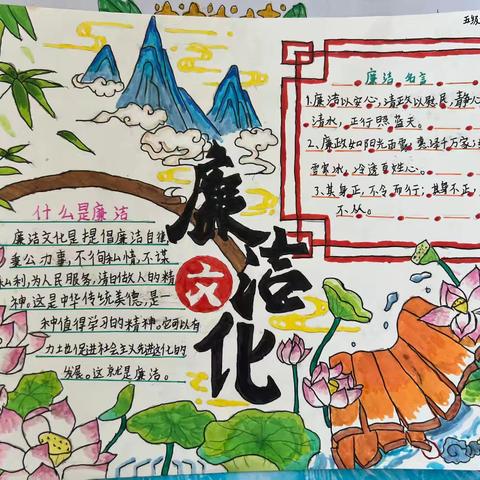 五级
廉洁文化
什么是廉洁
廉洁文化是提倡廉洁自律,
秉公力事,不徇私情,不谋
私利,为人民服务,清白做人的精
神。这是中华传统美德,是一
种值得学习的精神。也可以有
力土也促进社会主义先进文化的
发展。这就是廉洁。
廉洁名言
1.廉洁以安心,清政以致民,静心
清水,正行照蓝天。
2、廉政如阳光雨露,惠泽千万家;
雪寒冰,冷透百姓心。
3、其身正,不令而行;其身不正,
不丛。